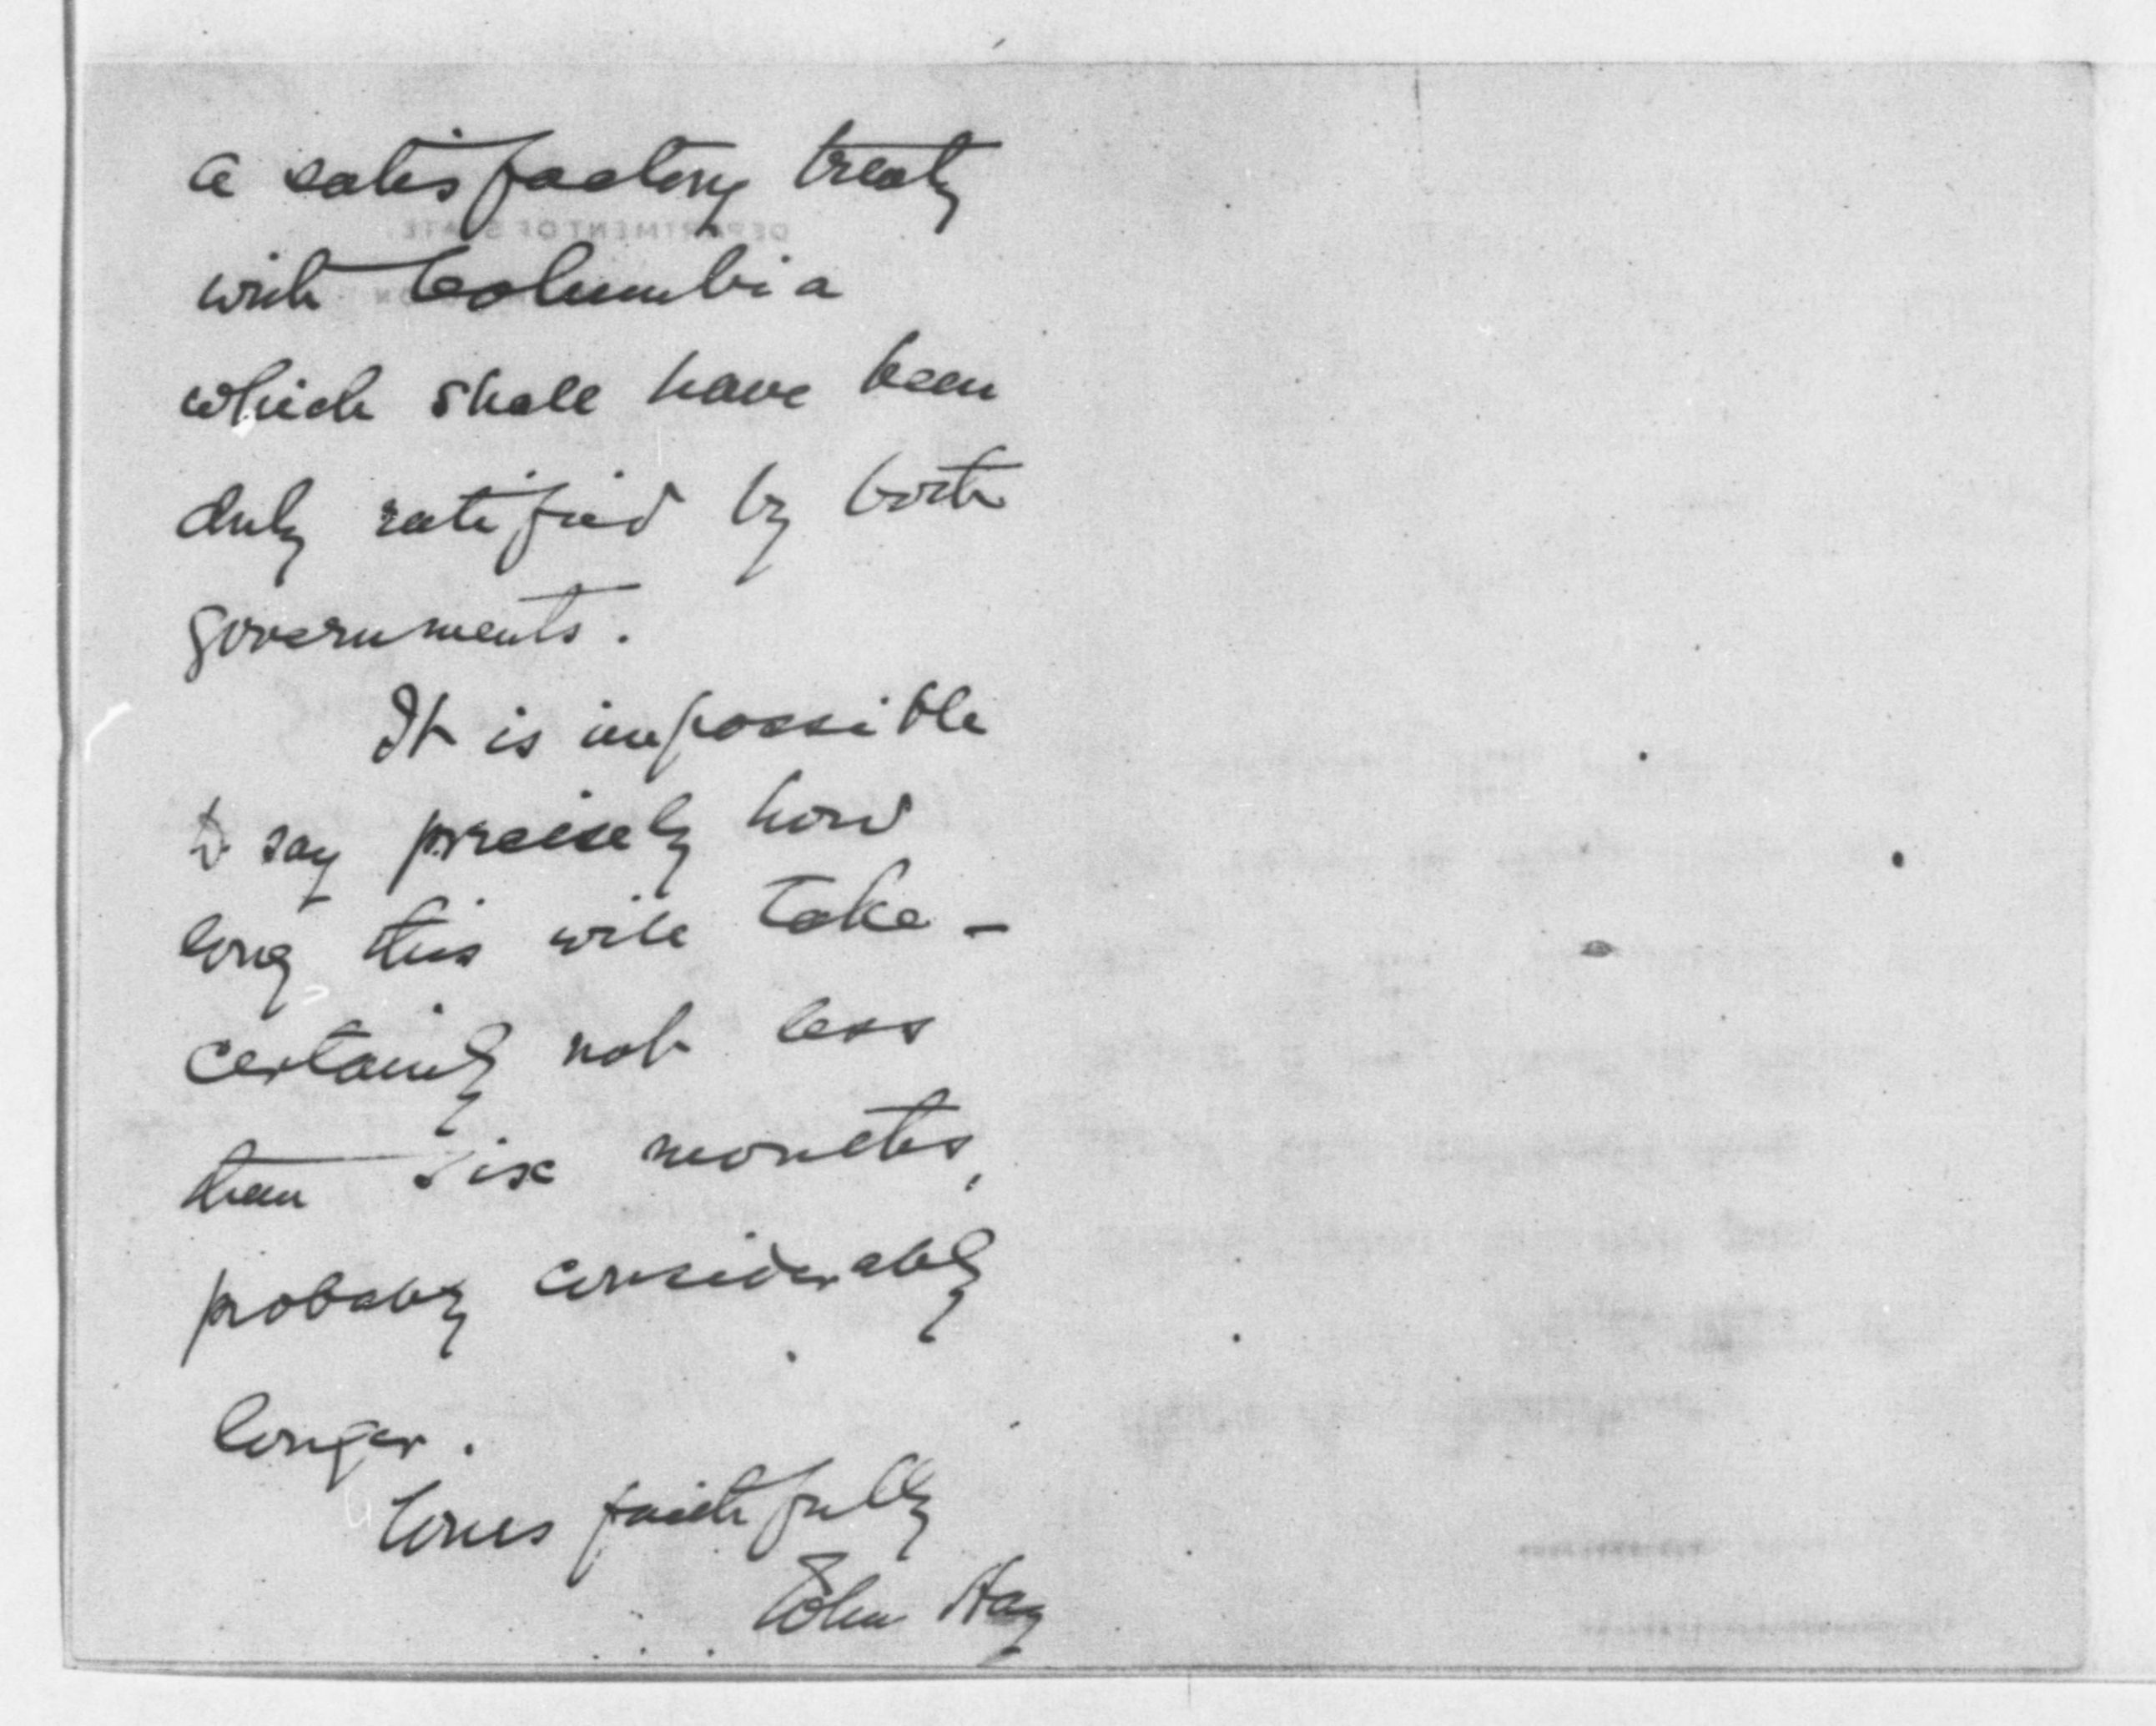 a satisfactory treaty
with Columbia
which shall have been
duly ratified by both
governments.
It is impossible
to say precisely how
long this will take –
certainly not less
than six months,
probably considerably
longer.
Yours faithfully
John Hay
DEPARTMENT OF STATE.